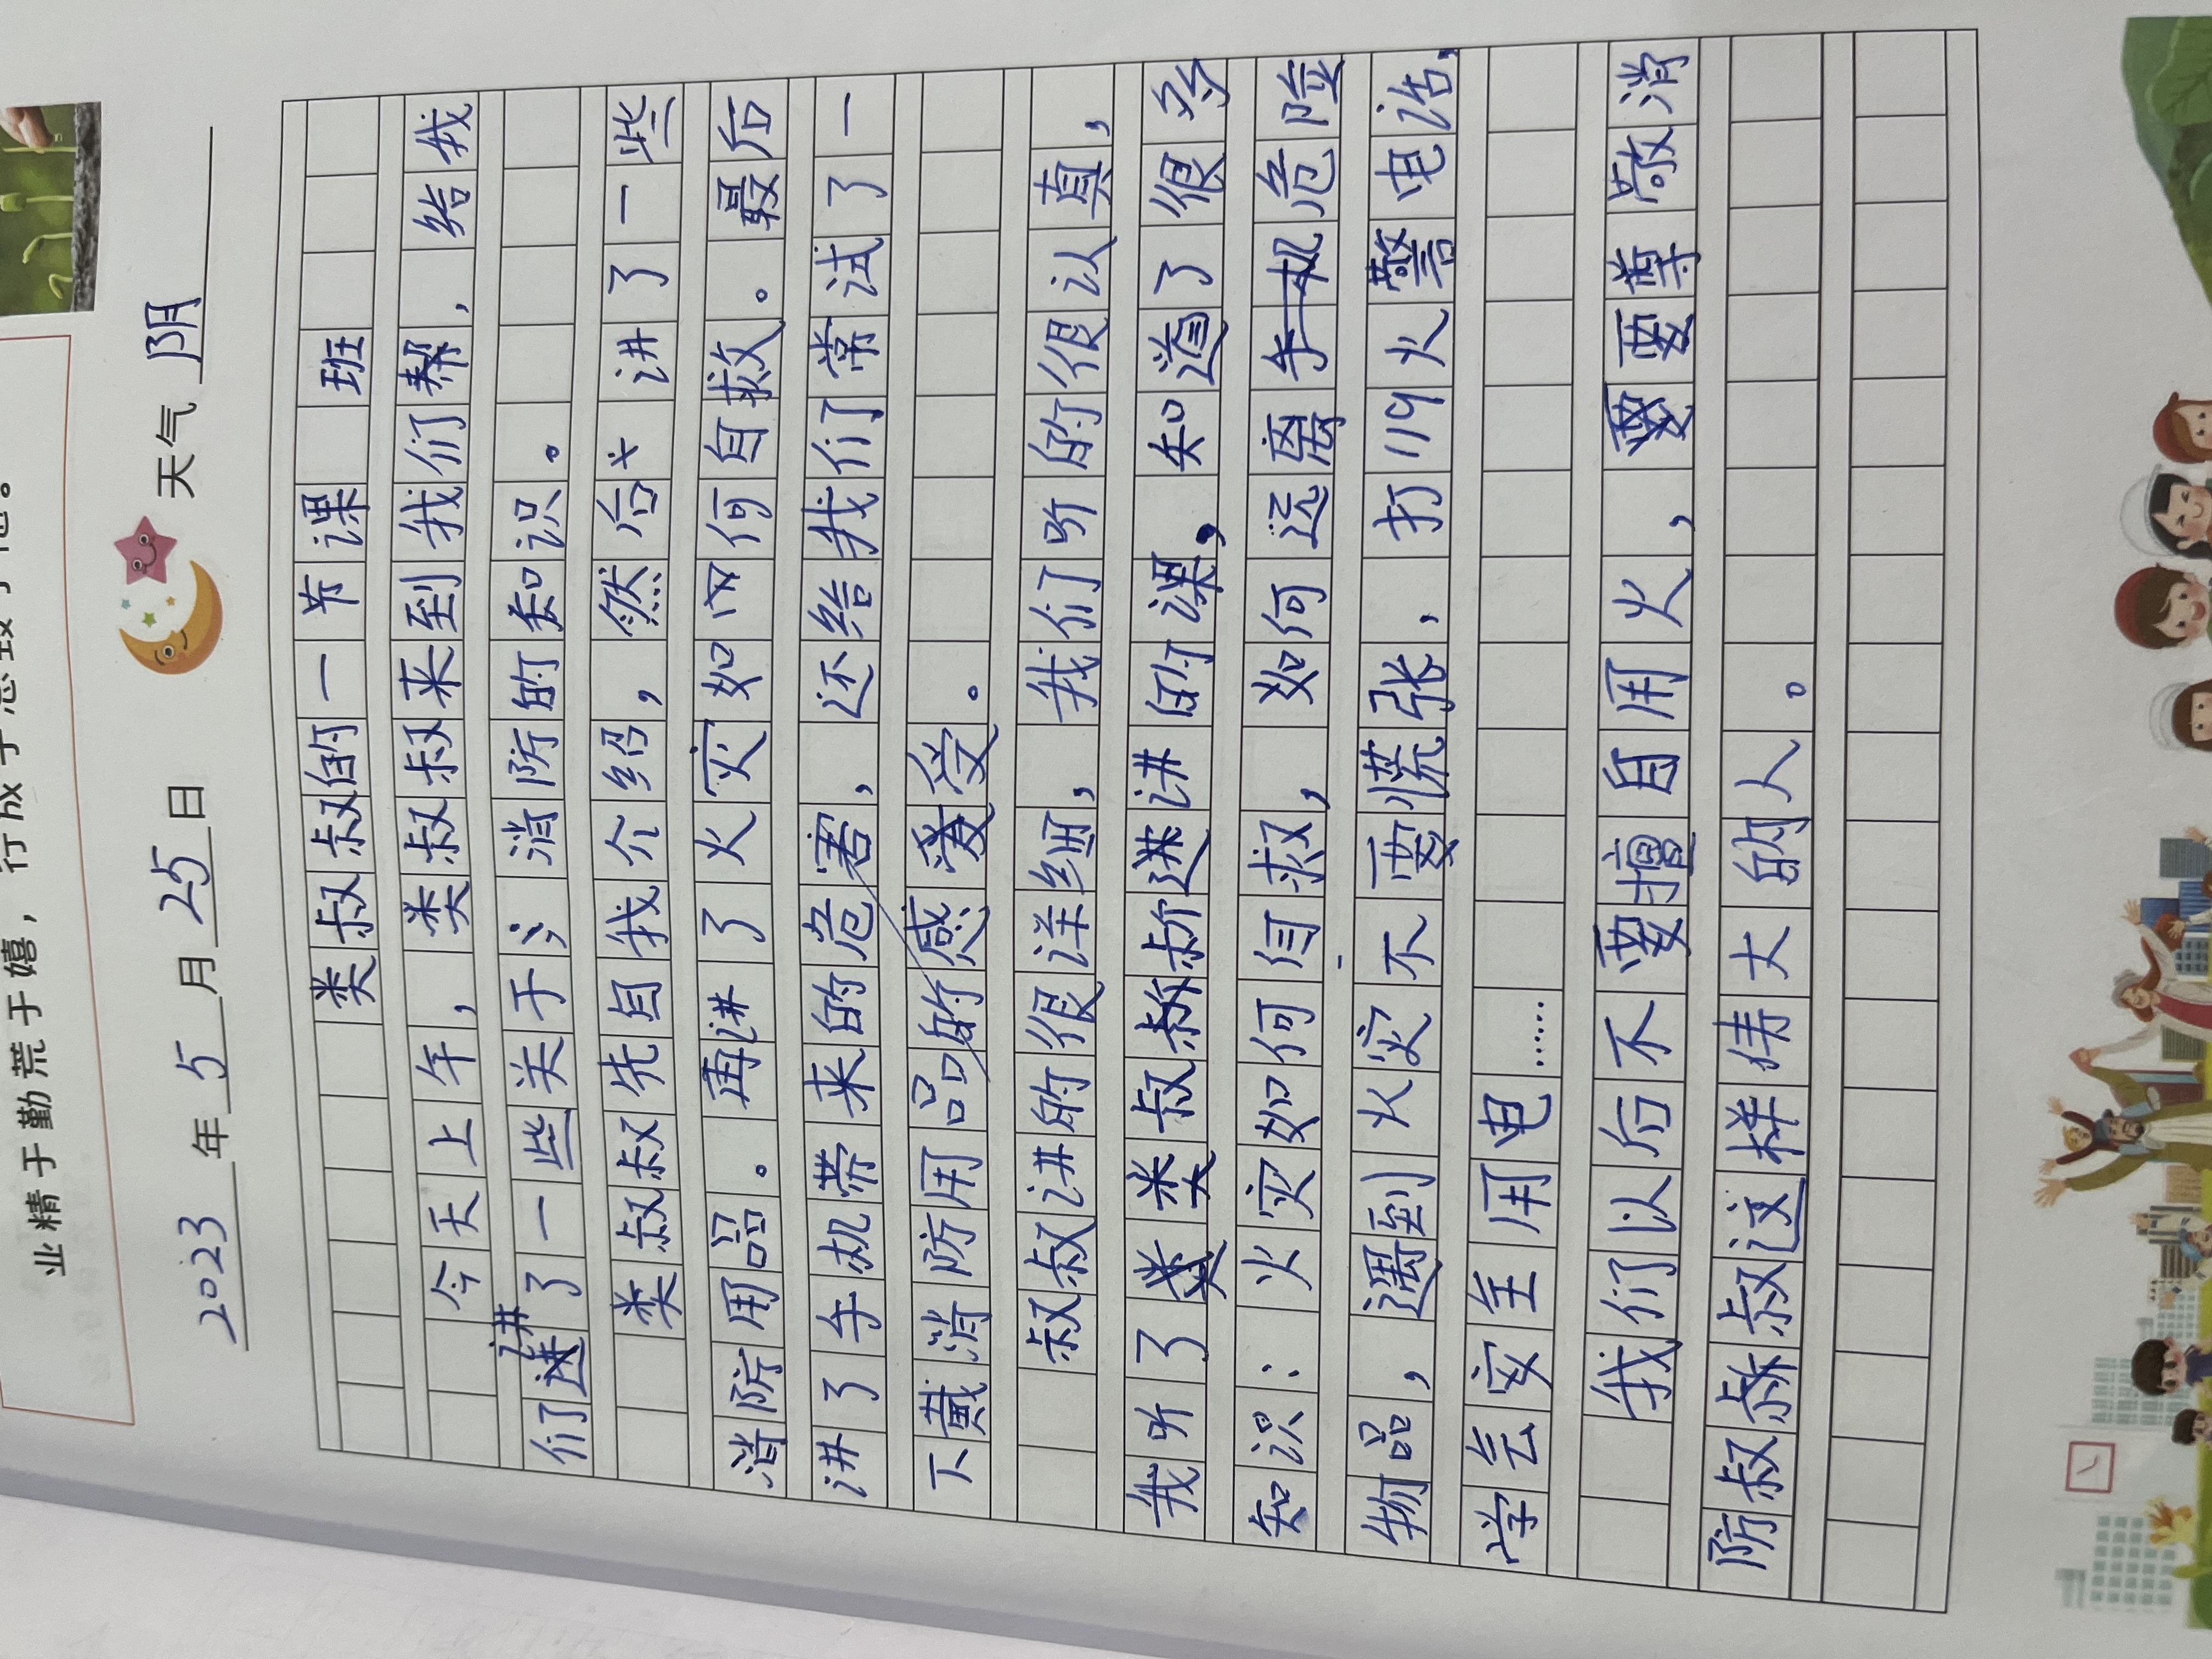 业精于勤荒于嬉，行成于思毁于随。
2023年5月25日 天气 阴
类叔叔的一节课 班
今天上午，类叔叔来到我们帮，给我
们讲了一些关于消防的知识。
类叔叔先自我介绍，然后讲了一些
消防用品。再讲了火灾如何自救。最后
讲了手机带来的危害，还给我们常试了一
下戴消防用品的感受。
叔叔讲的很详细，我们听的很认真，
我听了类叔叔讲的课，知道了很多
知识：火灾如何自救，如何远离手机危险
物品，遇到火灾不要慌张，打119火警电话，
学会安全用电……
我们以后不要擅自用火，要尊敬消
防叔叔这样伟大的人。